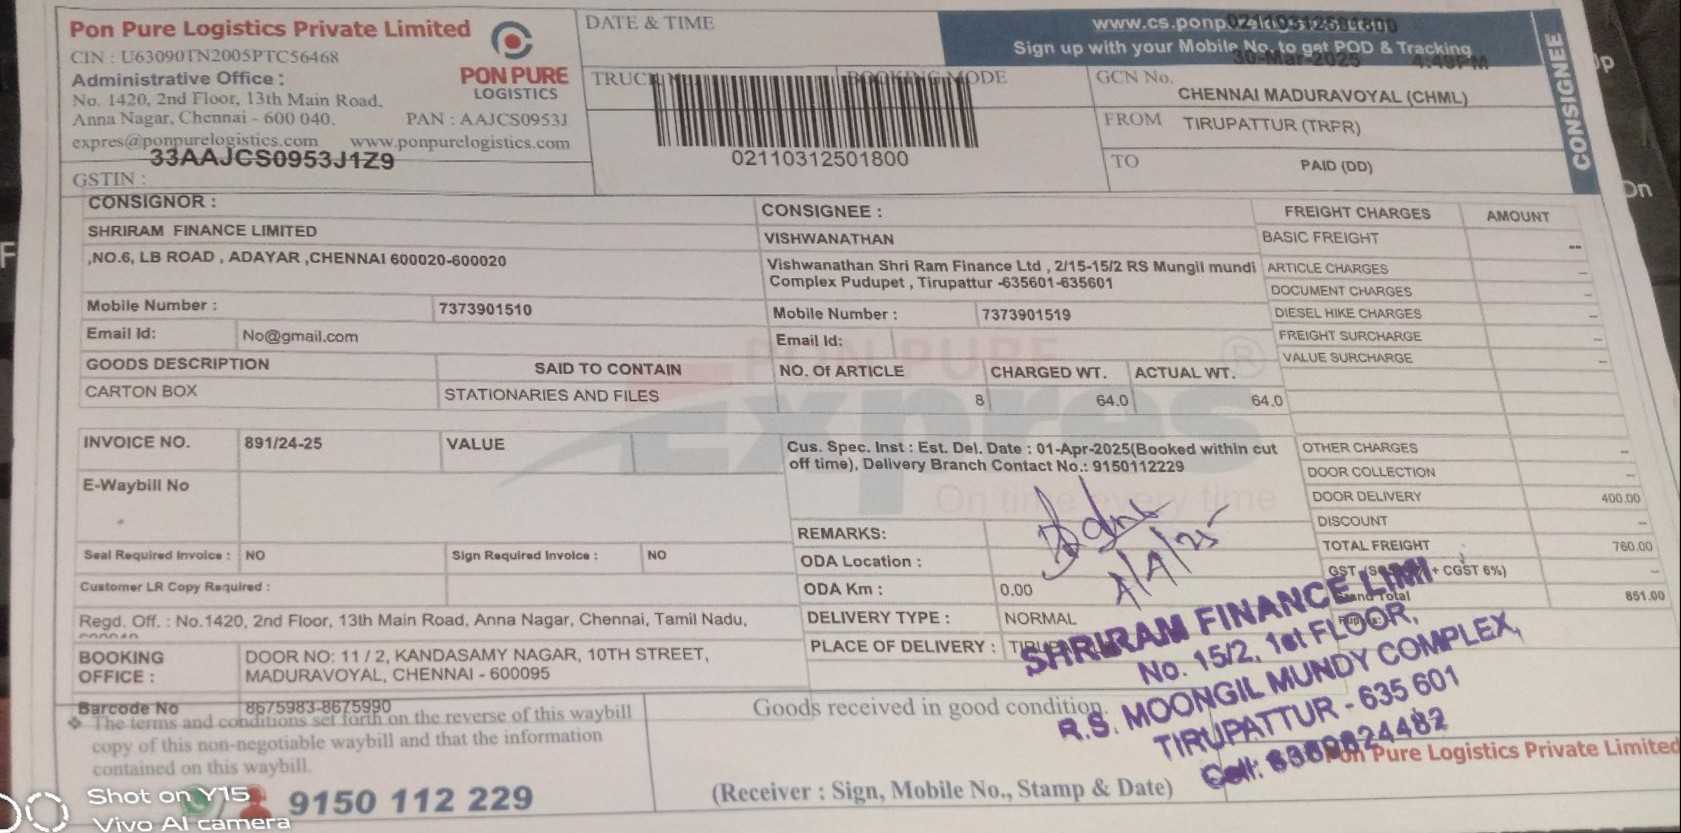 Pon Pure Logistics Private Limited
CIN : U63090TN2005PTC56468
Administrative Office :
No. 1420, 2nd Floor, 13th Main Road,
Anna Nagar, Chennai - 600 040. PAN : AAJCS0953J
expres@ponpurelogistics.com www.ponpurelogistics.com
33AAJCS0953J1Z9
GSTIN :
PON PURE
LOGISTICS
DATE & TIME
TRUCK
BOOKING MODE
02110312501800
www.cs.ponp
02110312501800
Sign up with your Mobile No. to get POD & Tracking
30-Mar-2025 4:49PM
GCN No.
CHENNAI MADURAVOYAL (CHML)
FROM TIRUPATTUR (TRPR)
TO PAID (DD)
CONSIGNEE
CONSIGNOR :
SHRIRAM FINANCE LIMITED
,NO.6, LB ROAD , ADAYAR ,CHENNAI 600020-600020
Mobile Number : 7373901510
Email Id: No@gmail.com
CONSIGNEE :
VISHWANATHAN
Vishwanathan Shri Ram Finance Ltd , 2/15-15/2 RS Mungil mundi
Complex Pudupet , Tirupattur -635601-635601
Mobile Number : 7373901519
Email Id:
FREIGHT CHARGES AMOUNT
BASIC FREIGHT --
ARTICLE CHARGES --
DOCUMENT CHARGES --
DIESEL HIKE CHARGES --
FREIGHT SURCHARGE --
VALUE SURCHARGE --
GOODS DESCRIPTION SAID TO CONTAIN NO. Of ARTICLE CHARGED WT. ACTUAL WT.
CARTON BOX STATIONARIES AND FILES 8 64.0 64.0
PON PURE ®
Expres
On time every time
INVOICE NO. 891/24-25 VALUE
E-Waybill No
Cus. Spec. Inst : Est. Del. Date : 01-Apr-2025(Booked within cut
off time), Delivery Branch Contact No.: 9150112229
OTHER CHARGES --
DOOR COLLECTION --
DOOR DELIVERY 400.00
DISCOUNT --
TOTAL FREIGHT 760.00
GST + CGST 6%) --
Grand Total 851.00
Seal Required Invoice : NO Sign Required Invoice : NO
Customer LR Copy Required :
REMARKS:
ODA Location :
ODA Km : 0.00
DELIVERY TYPE : NORMAL
PLACE OF DELIVERY :
Regd. Off. : No.1420, 2nd Floor, 13th Main Road, Anna Nagar, Chennai, Tamil Nadu,
BOOKING
OFFICE :
DOOR NO: 11 / 2, KANDASAMY NAGAR, 10TH STREET,
MADURAVOYAL, CHENNAI - 600095
Barcode No 8675983-8675990
The terms and conditions set forth on the reverse of this waybill
copy of this non-negotiable waybill and that the information
contained on this waybill.
9150 112 229
Goods received in good condition.
(Receiver : Sign, Mobile No., Stamp & Date)
SHRIRAM FINANCE LIMI
No. 15/2, 1st FLOOR,
R.S. MOONGIL MUNDY COMPLEX,
TIRUPATTUR - 635 601
Pon Pure Logistics Private Limited
Shot on Y15
Vivo AI camera